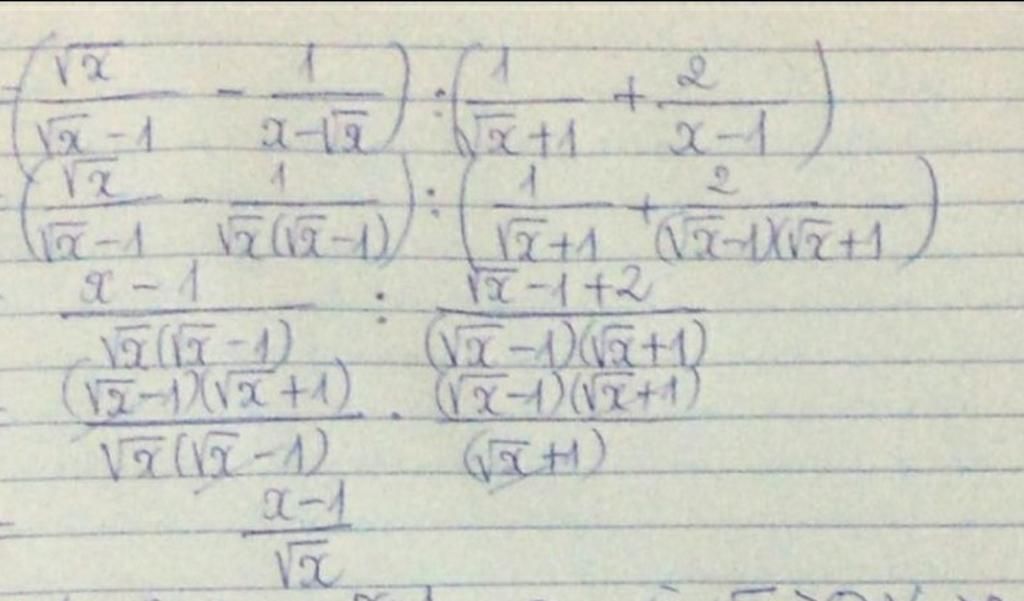 (√x/(√x-1) - 1/(x-√x)) : (1/(√x+1) + 2/(x-1))
(√x/(√x-1) - 1/(√x(√x-1))) : (1/(√x+1) + 2/((√x-1)(√x+1)))
(x-1)/(√x(√x-1)) : (√x-1+2)/((√x-1)(√x+1))
((√x-1)(√x+1))/(√x(√x-1)) . ((√x-1)(√x+1))/(√x+1)
= (x-1)/√x